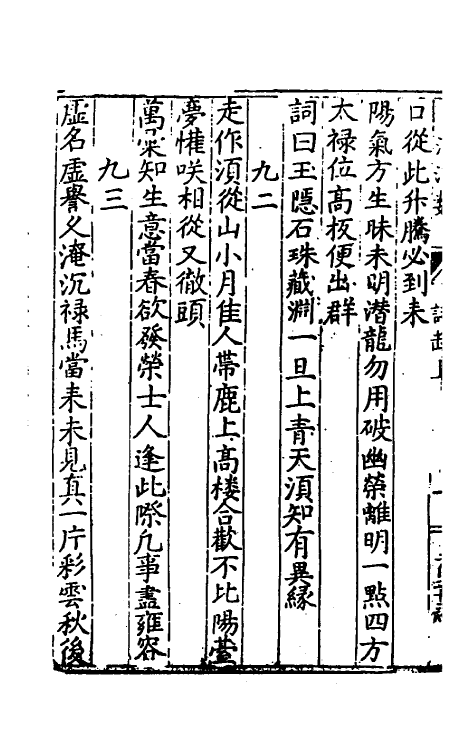 口從此升騰必到未
陽氣方生昧未明潛龍勿用破幽榮離明一點四方
太禄位髙板便出群
詞曰玉隱石珠藏淵一旦上青天湏知有異緣
九二
走作湏從山小月佳人帶鹿上髙楼合歡不比陽臺
夢㩴咲相從又徹頭
萬朵知生意當春欲發榮士人逢此際凢事盡雍容
九三
虚名虚譽久淹沉禄馬當耒未見真一片彩雲秋後